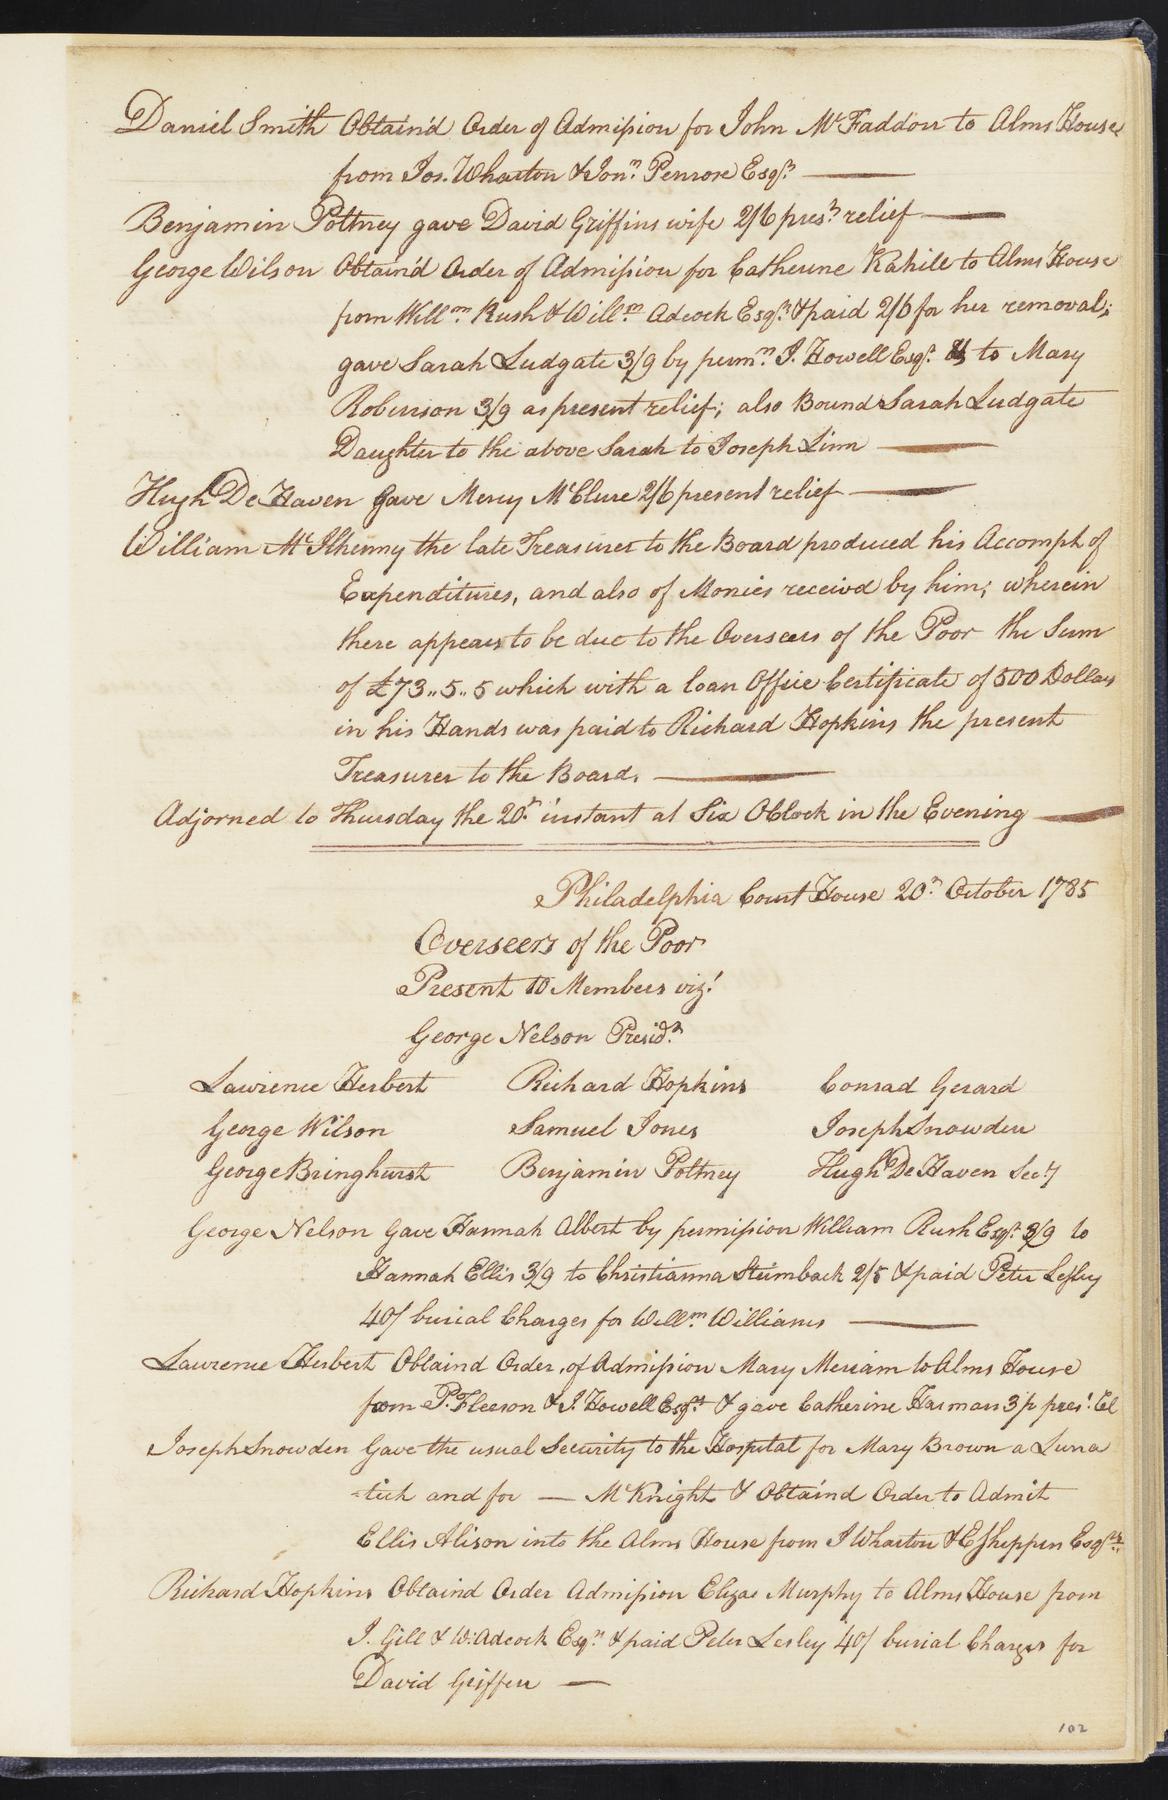 Daniel Smith Obtain'd Order of Admission for John McFaddon to Alms House
from Jos. Wharton & Jonn. Penrose Esqrs.
Benjamin Poltney gave David Griffins wife 2/6 prest. relief
George Wilson Obtain'd Order of Admission for Catherine Kahill to Alms House
from Willm. Rush & Willm. Adcock Esqrs. & paid 2/6 for her removal;
gave Sarah Ludgate 3/9 by permn. J. Howell Esqr. & to Mary
Robinson 3/9 as present relief; also Bound Sarah Ludgate
Daughter to the above Sarah to Joseph Linn
Hugh De Haven gave Mercy McClure 2/6 present relief
William McIlhenny the late Treasurer to the Board produced his Accompt of
Expenditures, and also of Monies receivd by him; wherein
there appears to be due to the Overseers of the Poor the Sum
of £73..5..5 which with a loan Office Certificate of 500 Dollars
in his Hands was paid to Richard Hopkins the present
Treasurer to the Board.
Adjorned to Thursday the 20th. instant at Six OClock in the Evening
Philadelphia Court House 20th. October 1785
Overseers of the Poor
Present 10 Members vizt.
George Nelson Presidt.
Lawrence Herbert Richard Hopkins Conrad Gerard
George Wilson Samuel Jones Joseph Snowden
George Bringhurst Benjamin Poltney Hugh De Haven Secy
George Nelson Gave Hannah Albert by permission William Rush Esqr. 3/9 to
Hannah Ellis 3/9 to Christianna Steimback 2/5 & paid Peter Lesley
40/ burial Charges for Willm. Williams
Lawrence Herbert Obtaind Order of Admission Mary Meriam to Alms House
from P. Fleeson & J. Howell Esqrs. & gave Catherine Harman 3/9 prest. Rel
Joseph Snowden Gave the usual Security to the Hospital for Mary Brown a Luna
-tick and for — McKnight & Obtaind Order to Admit
Ellis Alison into the Alms House from J Wharton & E Shippen Esqrs.
Richard Hopkins Obtaind Order Admission Elizae Murphy to Alms House from
J. Gill & W. Adcock Esqrs. & paid Peter Lesley 40/ burial Charges for
David Griffen —
102